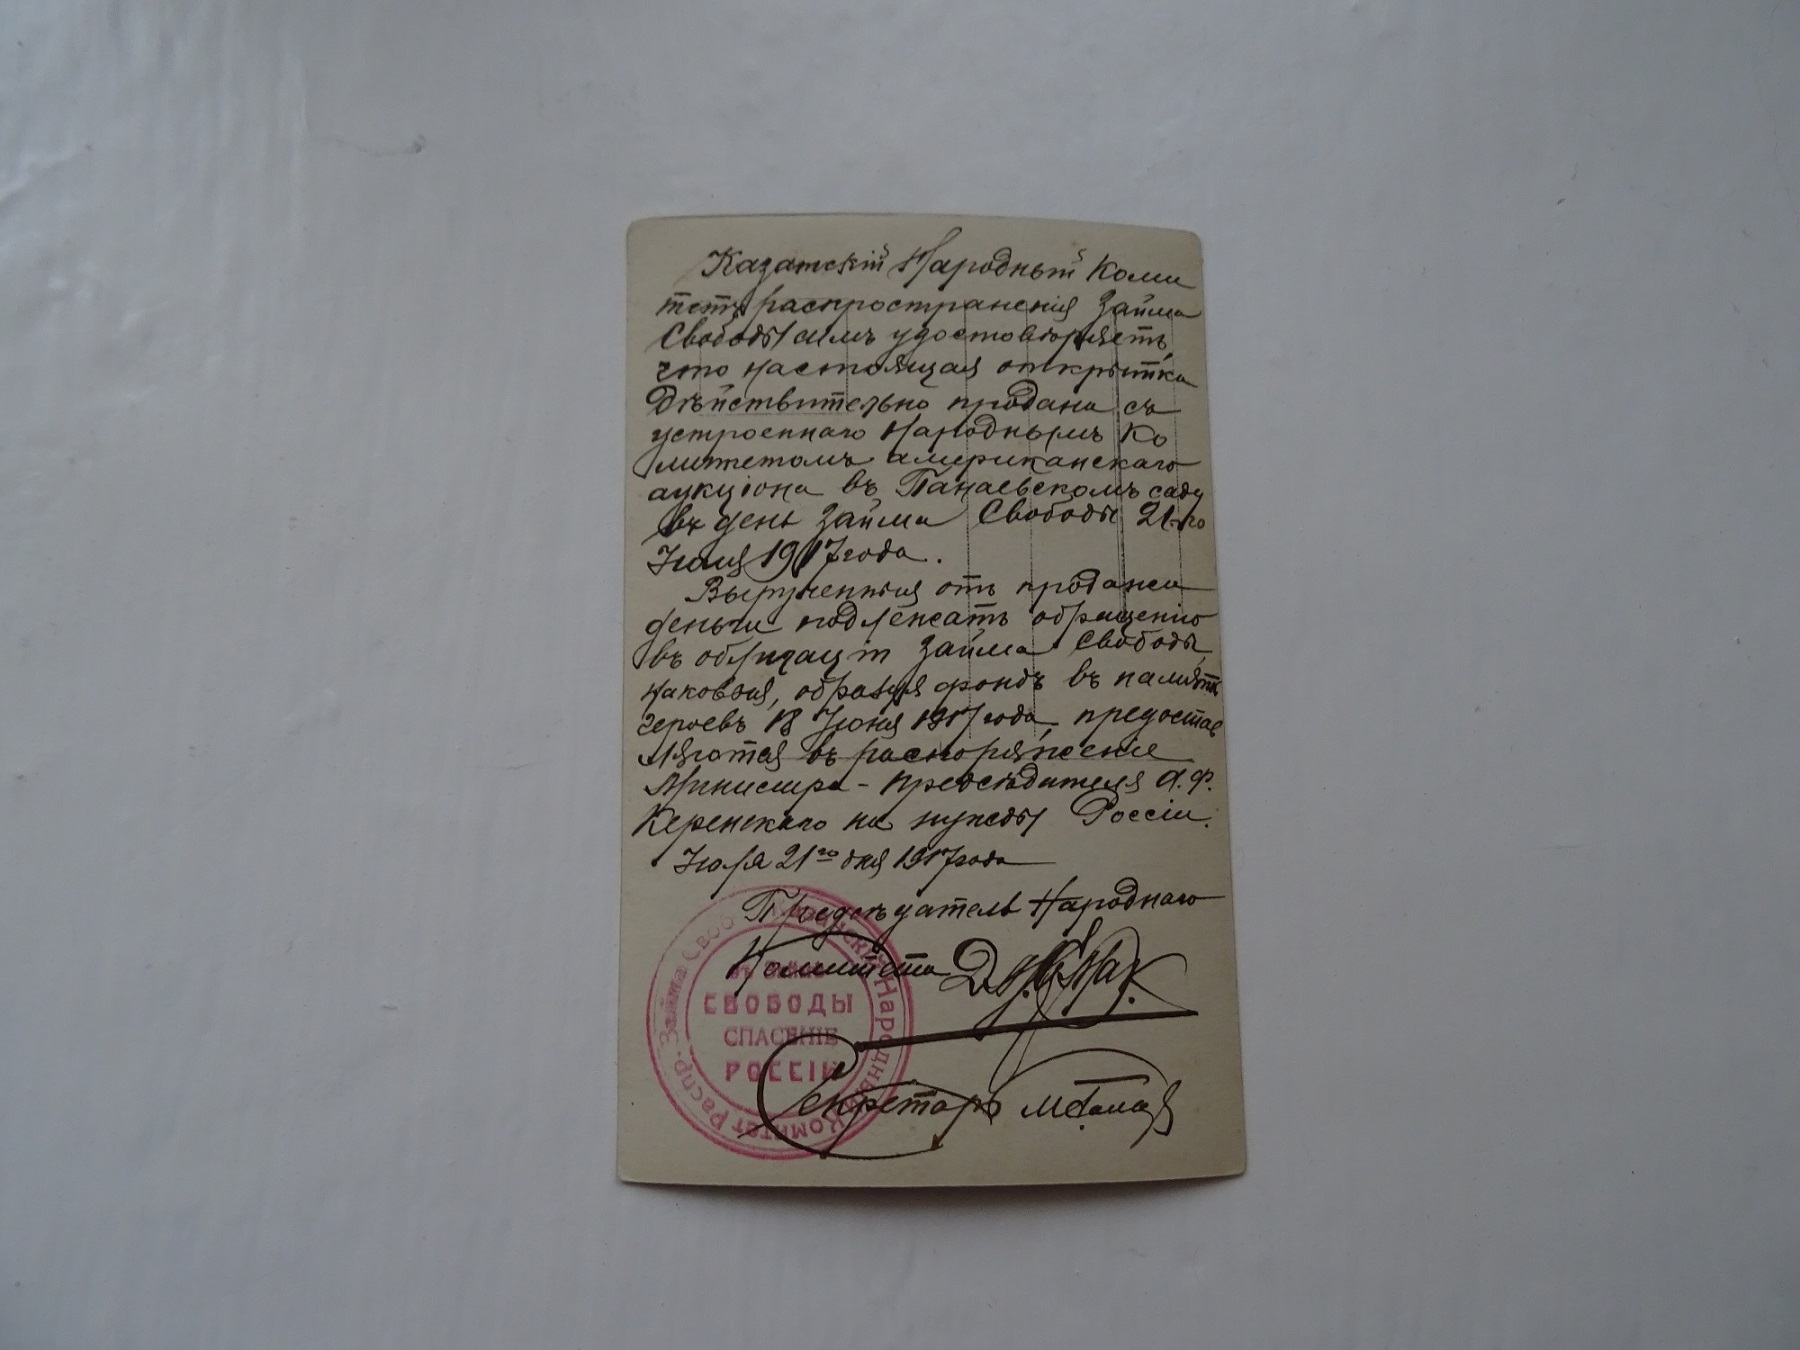 Казанскій Народный Коми
тетъ распространенія Займа
Свободы симъ удостовѣряетъ,
что настоящая открытка
дѣйствительно продана съ
устроеннаго Народнымъ Ко
митетомъ американскаго
аукціона въ Панаевскомъ саду
въ день Займа Свободы 21-го
Іюля 1917 года.
Вырученныя отъ продажи
деньги подлежатъ обращенію
въ облигаціи Займа Свободы,
каковыя, образуя фондъ въ память
героевъ 18 Іюня 1917 года, предостав
ляются въ распоряженіе
Министра-Предсѣдателя А.Ф.
Керенскаго на нужды Россіи.
Іюля 21го дня 1917 года
Предсѣдатель Народнаго
Комитета
Секретарь
Казанскій Народный Комитет Распр. Займа Свободы
СВОБОДЫ
СПАСЕНІЕ
РОССІИ